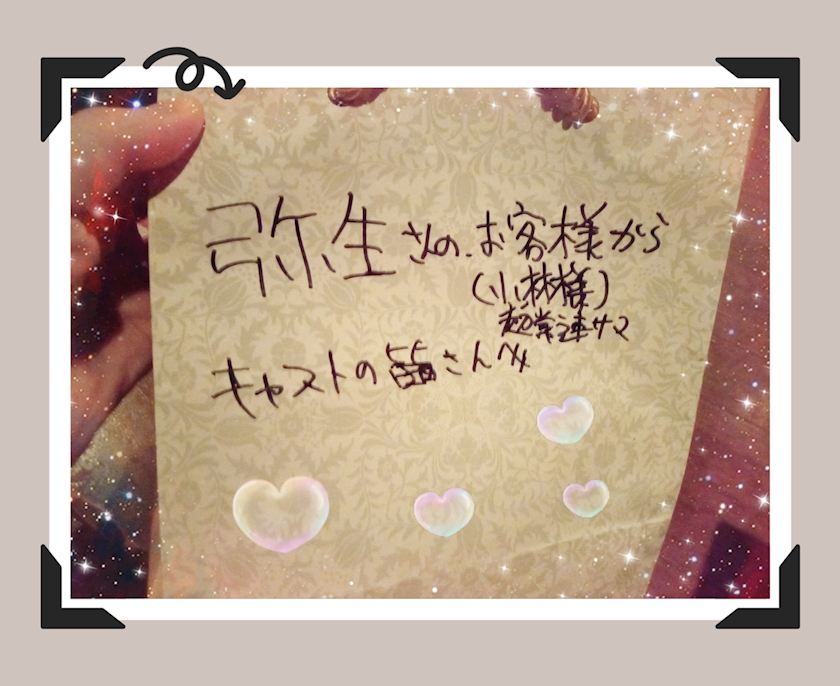 弥生さんのお客様から
(小林様)
超常連サマ
キャストの皆さんへ